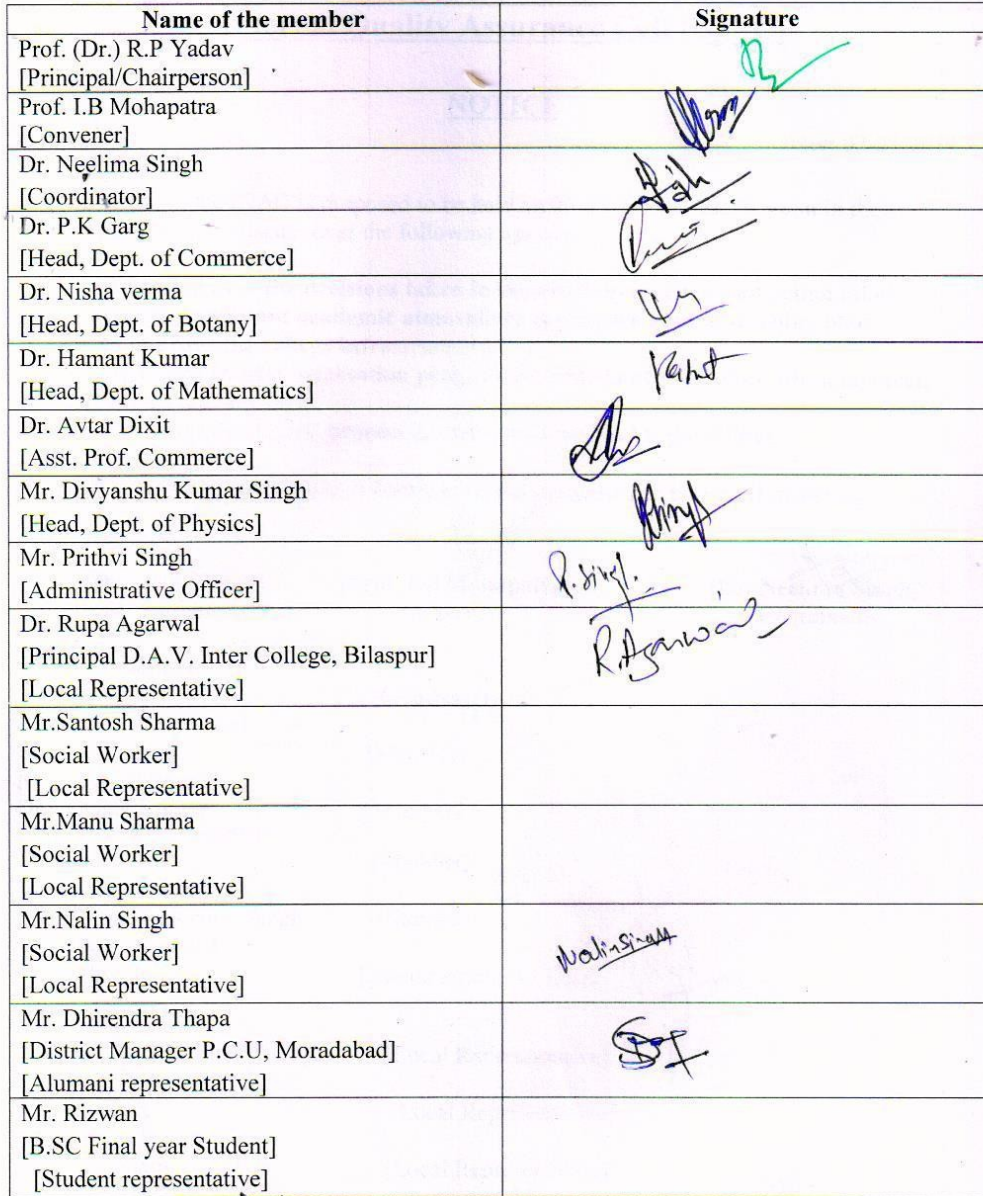 Name of the member Signature
Prof. (Dr.) R.P Yadav
[Principal/Chairperson]
Prof. I.B Mohapatra
[Convener]
Dr. Neelima Singh
[Coordinator]
Dr. P.K Garg
[Head, Dept. of Commerce]
Dr. Nisha verma
[Head, Dept. of Botany]
Dr. Hamant Kumar
[Head, Dept. of Mathematics]
Dr. Avtar Dixit
[Asst. Prof. Commerce]
Mr. Divyanshu Kumar Singh
[Head, Dept. of Physics]
Mr. Prithvi Singh
[Administrative Officer]
P. Singh.
Dr. Rupa Agarwal
[Principal D.A.V. Inter College, Bilaspur]
[Local Representative]
R. Agarwal
Mr.Santosh Sharma
[Social Worker]
[Local Representative]
Mr.Manu Sharma
[Social Worker]
[Local Representative]
Mr.Nalin Singh
[Social Worker]
[Local Representative]
Nalinsingh
Mr. Dhirendra Thapa
[District Manager P.C.U, Moradabad]
[Alumani representative]
Mr. Rizwan
[B.SC Final year Student]
[Student representative]